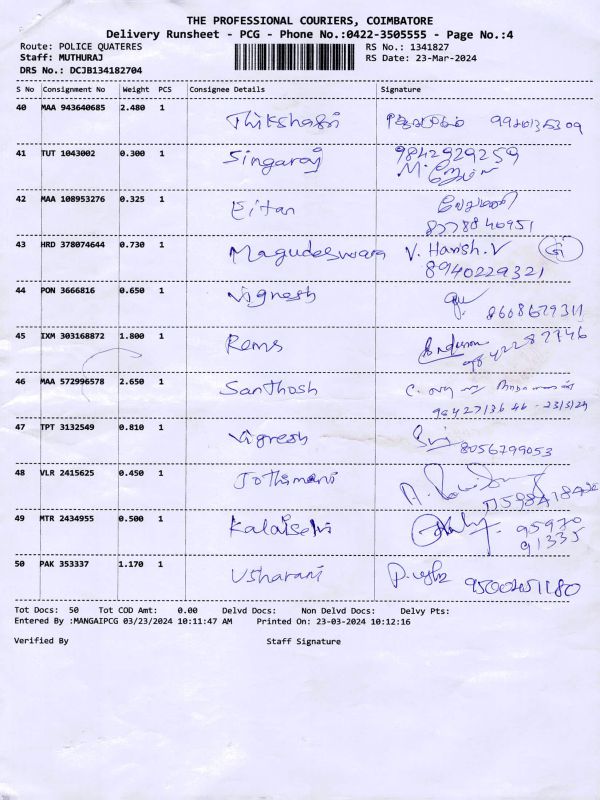 THE PROFESSIONAL COURIERS, COIMBATORE
Delivery Runsheet - PCG - Phone No.:0422-3505555 - Page No.:4
Route: POLICE QUATERES RS No.: 1341827
Staff: MUTHURAJ RS Date: 23-Mar-2024
DRS No.: DCJB134182704
S No Consignment No Weight PCS Consignee Details Signature
40 MAA 943640685 2.480 1 Thikshasri
41 TUT 1043002 0.300 1 Singaraj 9842929259
42 MAA 108953276 0.325 1 Eitan
8778840951
43 HRD 378074644 0.730 1 Magudeswara V. Harish.V
8940229321
44 PON 3666816 0.650 1 Vignesh
8608679311
45 IXM 303168872 1.800 1 Rems
9842287746
46 MAA 572996578 2.650 1 Santhosh
23/3/24
47 TPT 3132549 0.810 1 Vignesh
8056799053
48 VLR 2415625 0.450 1 Jothimani
49 MTR 2434955 0.500 1 Kalaiselvi 95970
91335
50 PAK 353337 1.170 1 Usharani P. usha 9500451180
Tot Docs: 50 Tot COD Amt: 0.00 Delvd Docs: Non Delvd Docs: Delvy Pts:
Entered By :MANGAIPCG 03/23/2024 10:11:47 AM Printed On: 23-03-2024 10:12:16
Verified By Staff Signature